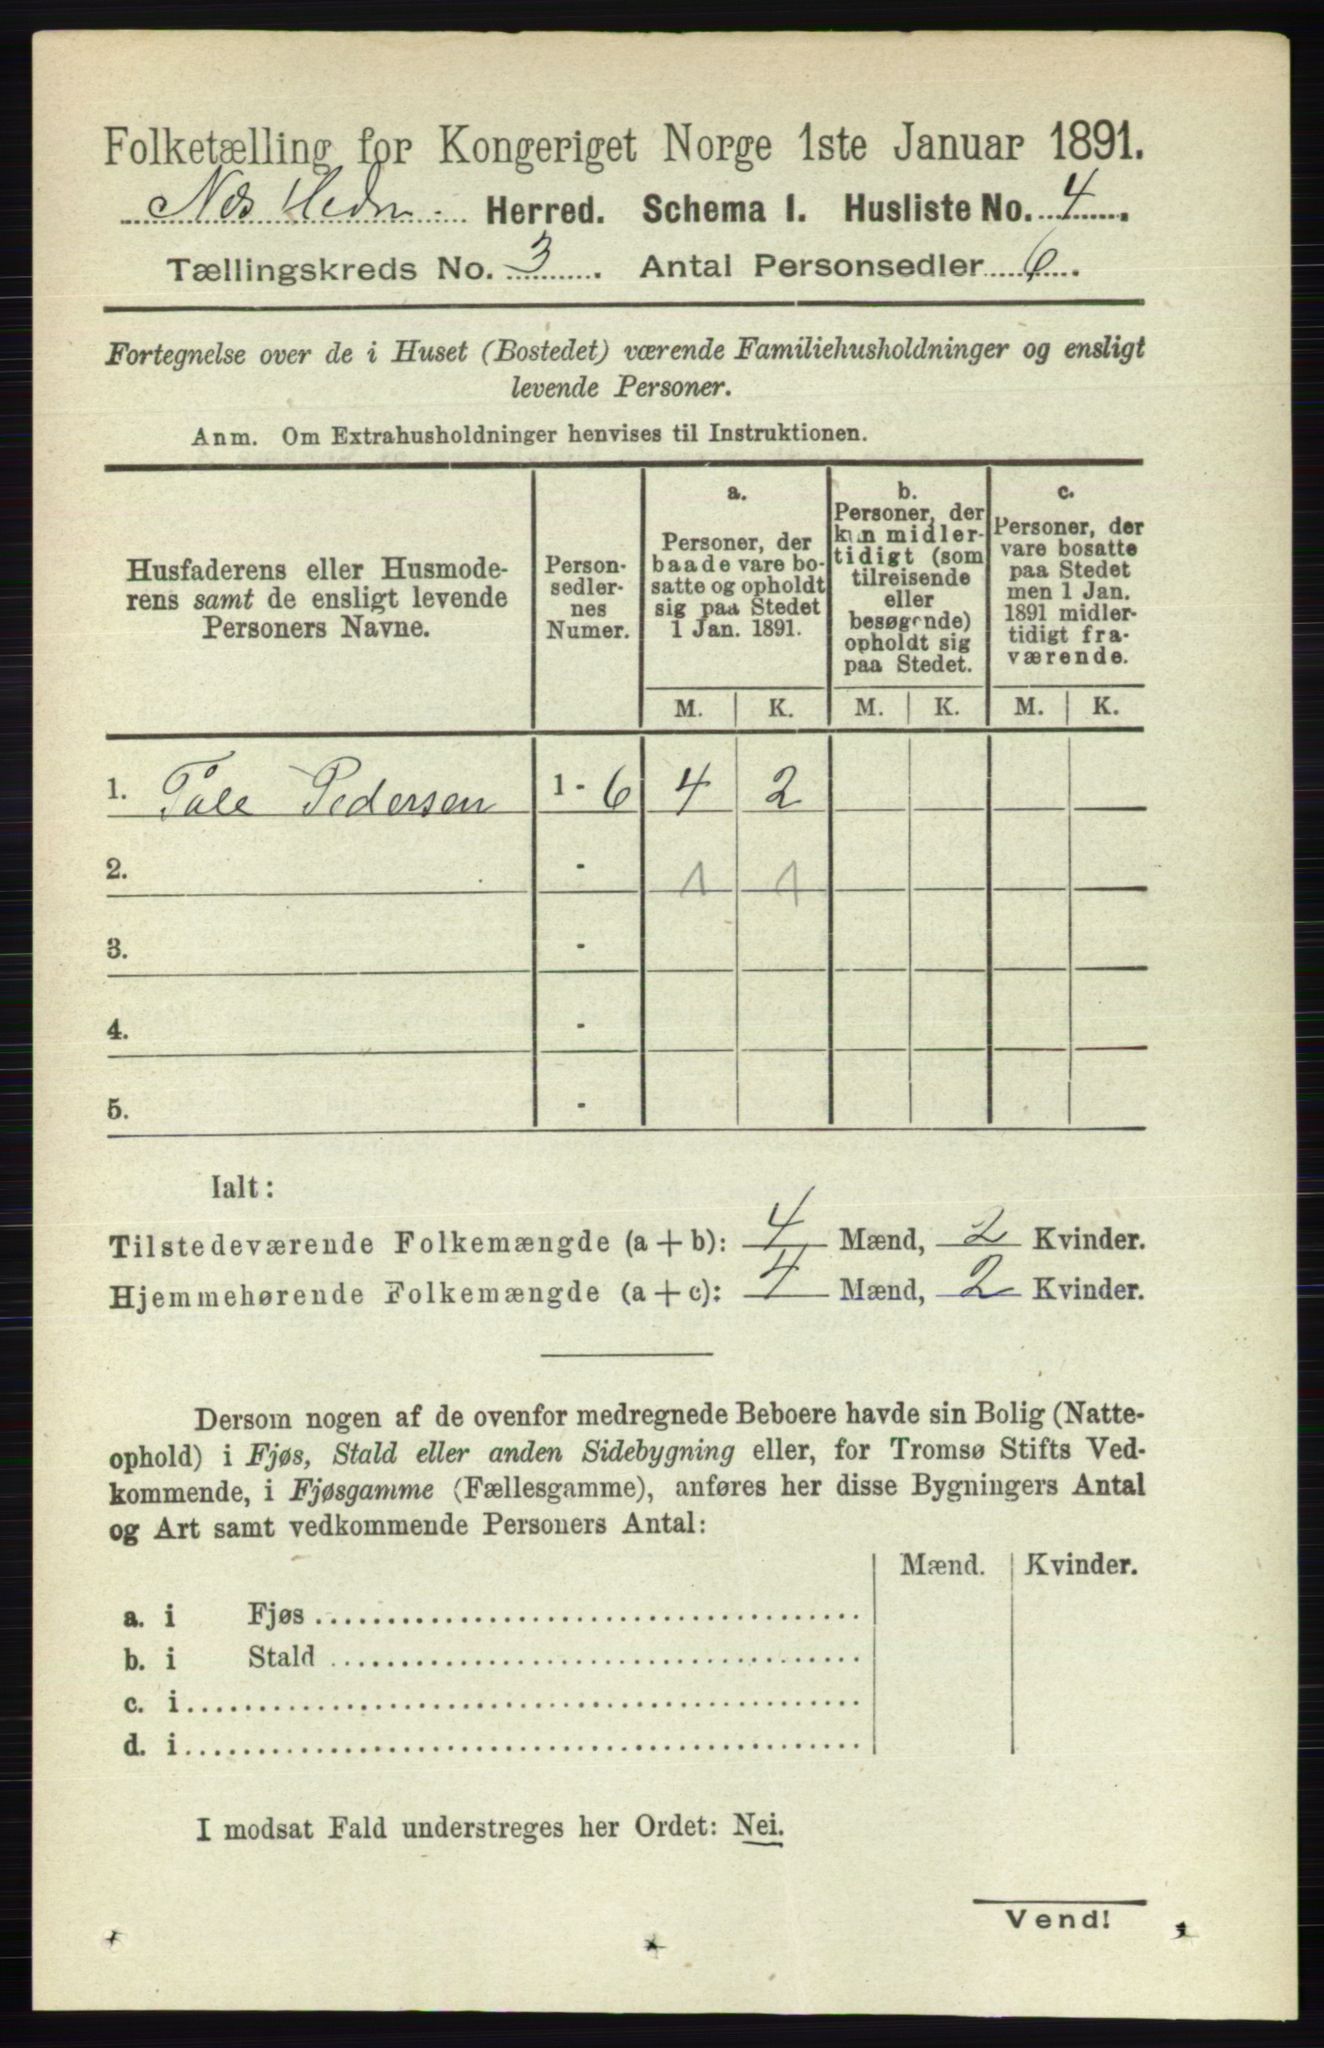 Folketælling for Kongeriget Norge 1ste Januar 1891.
Nes Hedm. Herred. Schema I. Husliste No. 4.
Tællingskreds No. 3. Antal Personsedler 6.
Fortegnelse over de i Huset (Bostedet) værende Familiehusholdninger og ensligt
levende Personer.
Anm. Om Extrahusholdninger henvises til Instruktionen.
Husfaderens eller Husmode-
rens samt de ensligt levende
Personers Navne.
Person-
sedler-
nes
Numer.
a.
Personer, der
baade vare bo-
satte og opholdt
sig paa Stedet
1 Jan. 1891.
b.
Personer, der
kun midler-
tidigt (som
tilreisende
eller
besøgende)
opholdt sig
paa Stedet.
c.
Personer, der
vare bosatte
paa Stedet
men 1 Jan.
1891 midler-
tidigt fra-
værende.
M. K. M. K. M. K.
1. Pedersen 1 - 6 4 2
2. - 1 1
3. -
4. -
5. -
Ialt:
Tilstedeværende Folkemængde (a + b): 4 Mænd, 2 Kvinder.
Hjemmehørende Folkemængde (a + c): 4 Mænd, 2 Kvinder.
Dersom nogen af de ovenfor medregnede Beboere havde sin Bolig (Natte-
ophold) i Fjøs, Stald eller anden Sidebygning eller, for Tromsø Stifts Ved-
kommende, i Fjøsgamme (Fællesgamme), anføres her disse Bygningers Antal
og Art samt vedkommende Personers Antal:
Mænd. Kvinder.
a. i Fjøs
b. i Stald
c. i
d. i
I modsat Fald understreges her Ordet: Nei.
Vend!